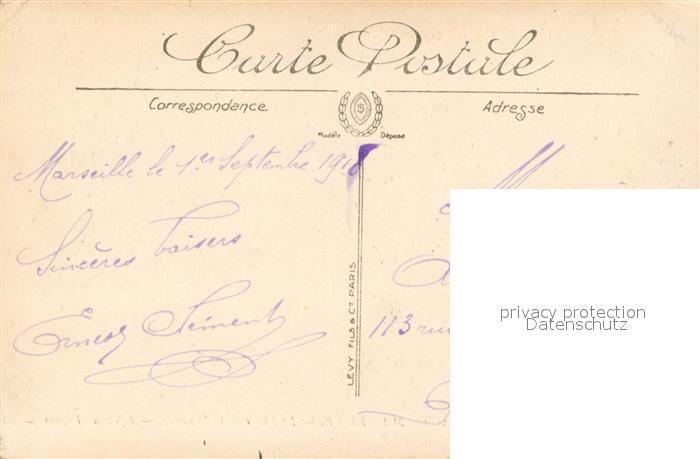 Carte Postale
Correspondance
Adresse
Modèle Déposé
Marseille le 1er Septembre 191
Sincères baisers
Ernest
LÉVY FILS & Cie PARIS
M
113 rue
privacy protection
Datenschutz